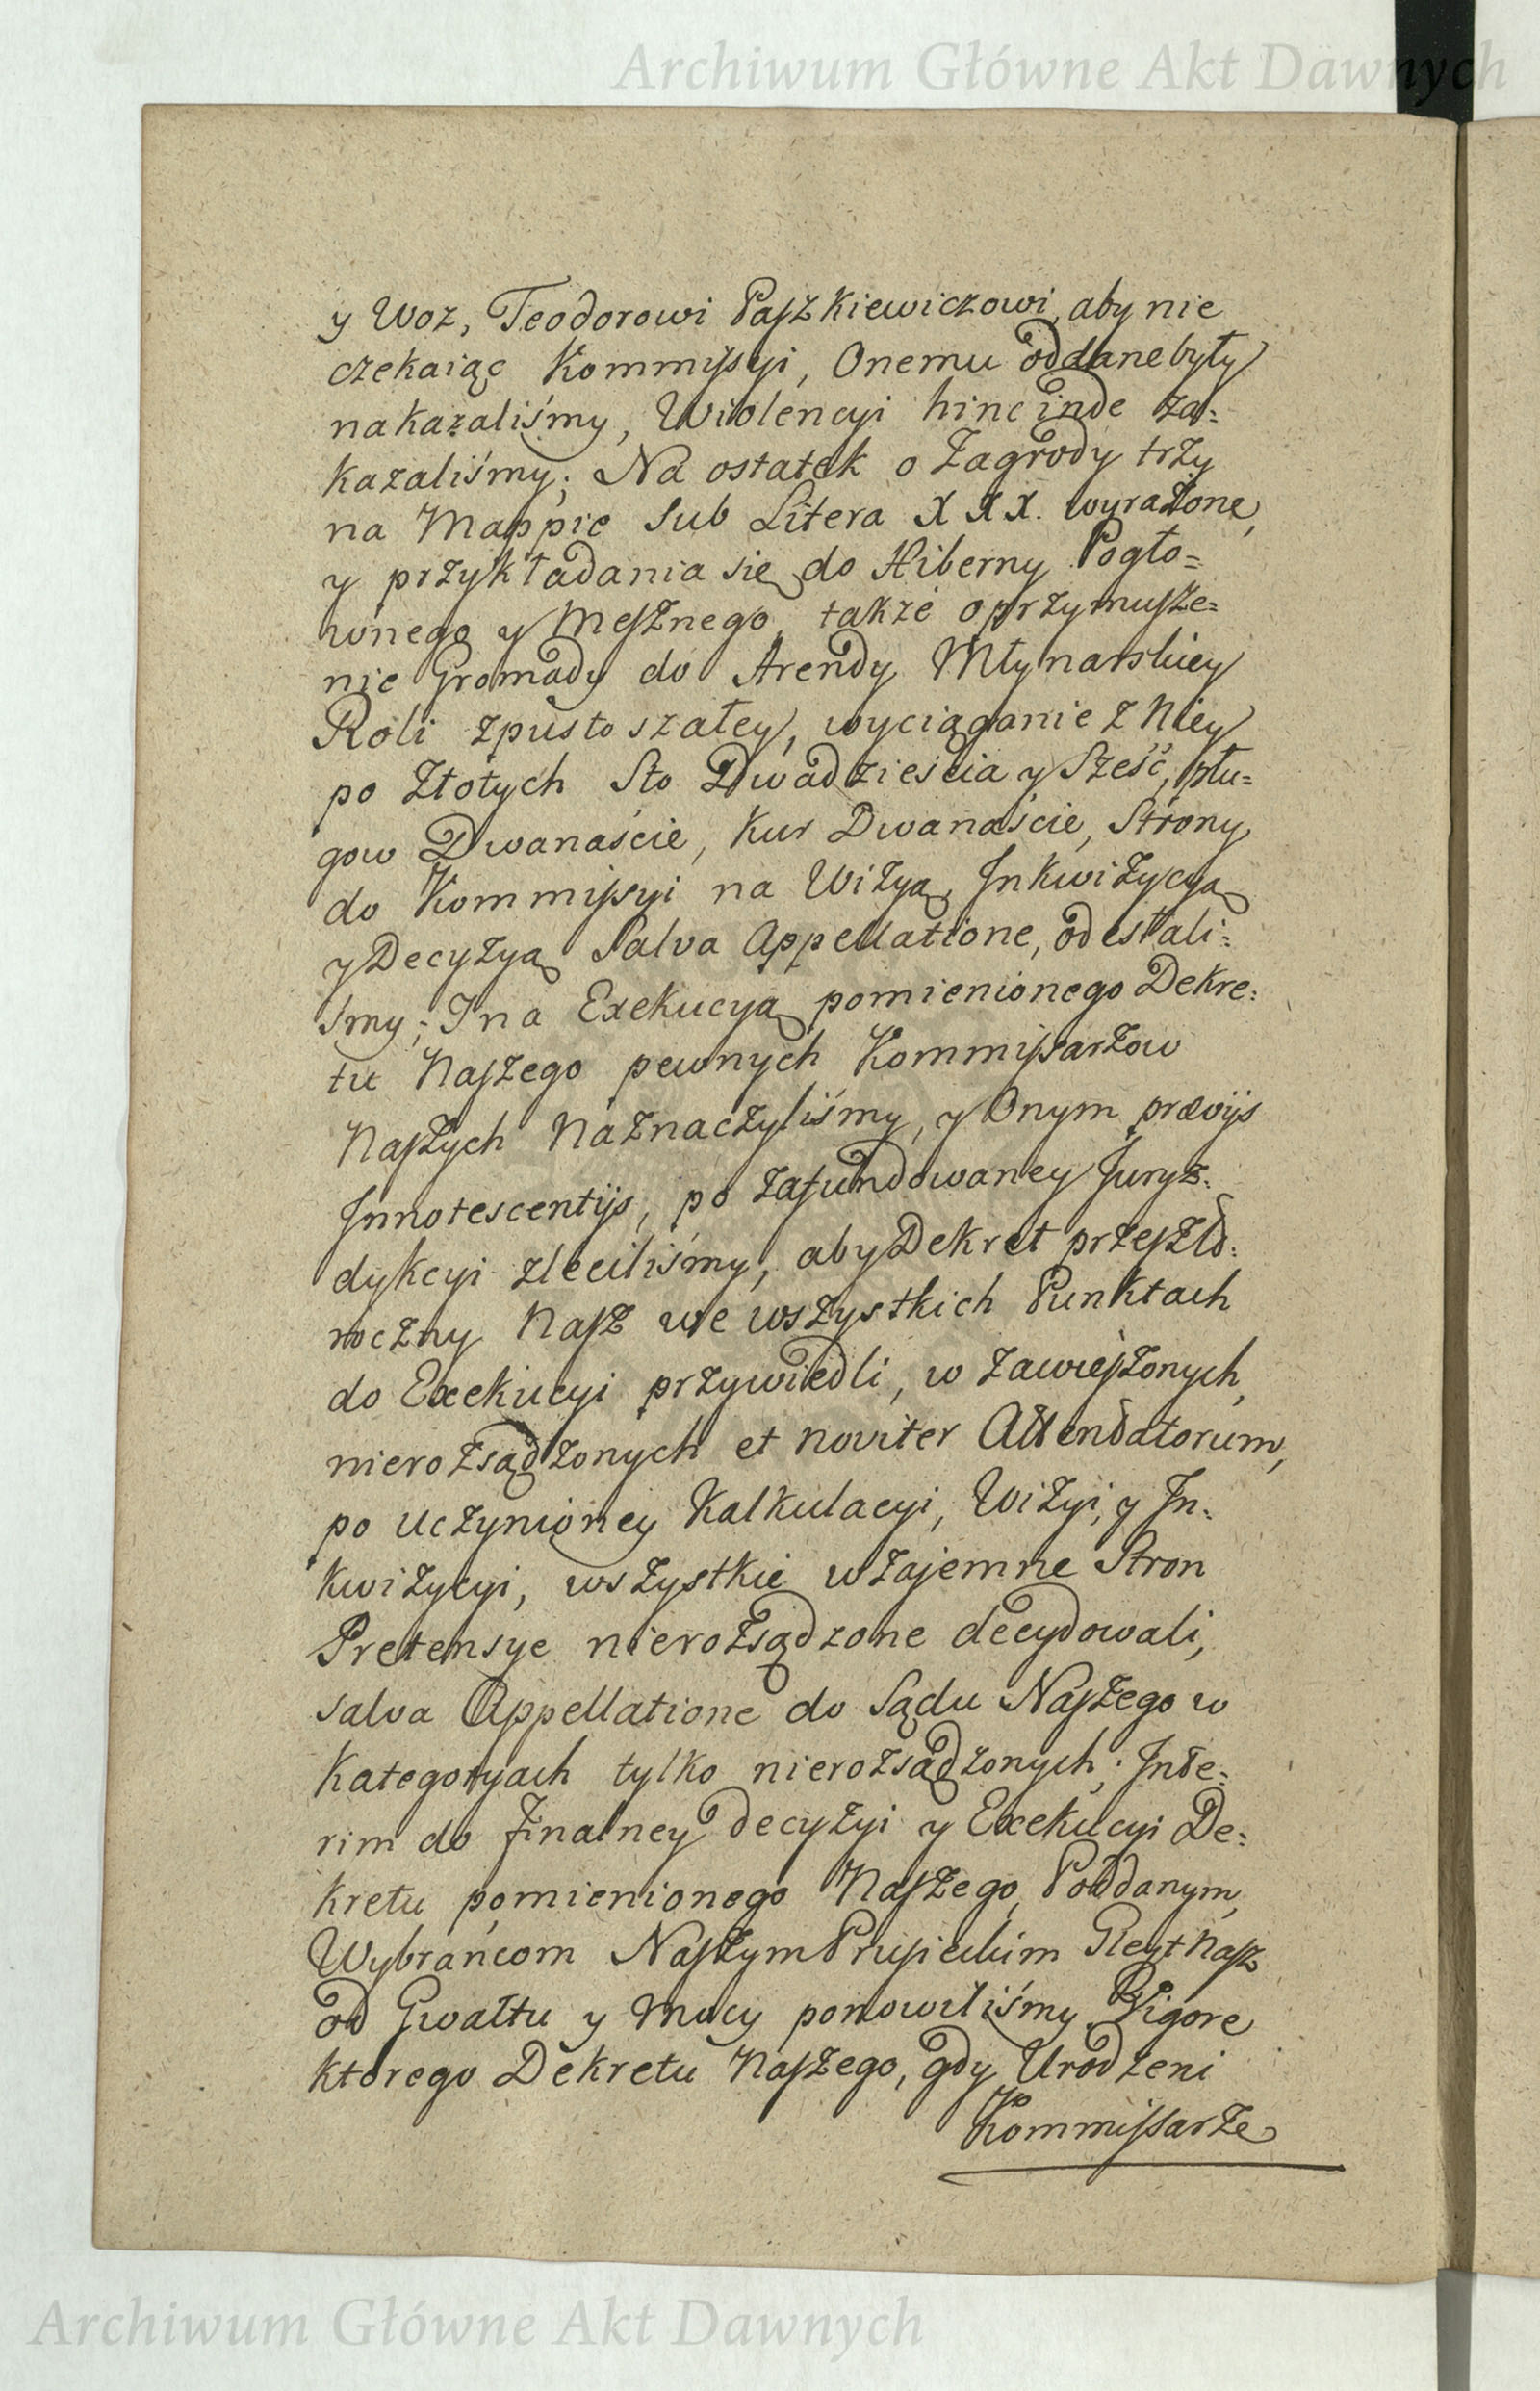 Archiwum Główne Akt Dawnych
y Woz, Teodorowi Paszkiewiczowi, aby nie
czekaiąc Kommissyi, Onemu oddane były
nakazaliśmy, Wiolencyi hinc inde za-
kazaliśmy; Na ostatek o Zagrody trzy
na Mappie sub Litera X X X. wyrażone,
y przykładania się do Hiberny Pogło=
wnego y Mesznego, także o przymusze=
nie Gromady do Arendy Młynarskiey
Roli zpustoszałey, wyciąganie z Niey
po Złotych Sto Dwadzieścia y Sześć, płu=
gow Dwanaście, Kur Dwanaście, Strony
do Kommissyi na Wizyą, Inkwizycyą
y Decyzyą Salva Appellatione, odesłali=
śmy; I na Exekucyą pomienionego Dekre=
tu Naszego pewnych Kommissarzow
Naszych Naznaczyliśmy, y Onym prævijs
Innotescentijs, po zafundowaney Juryz=
dykcyi zleciliśmy, aby Dekret przeszło=
roczny Nasz we wszystkich Punktach
do Exekucyi przywiedli, w zawieszonych,
nierozsądzonych et noviter Attendatorum,
po uczynioney Kalkulacyi, Wizyi, y In=
kwizycyi, wszystkie wzajemne Stron
Pretensye nierozsądzone decydowali,
salva Appellatione do Sądu Naszego w
Kategoryach tylko nierozsądzonych; Inte=
rim do finalney decyzyi y Exekucyi De=
kretu pomienionego Naszego, Poddanym,
Wybrańcom Naszym Prusieckim Gleyt Nasz
od Gwałtu y Mocy ponowiliśmy. Vigore
ktorego Dekretu Naszego, gdy Urodzeni
Kommissarze
Archiwum Główne Akt Dawnych